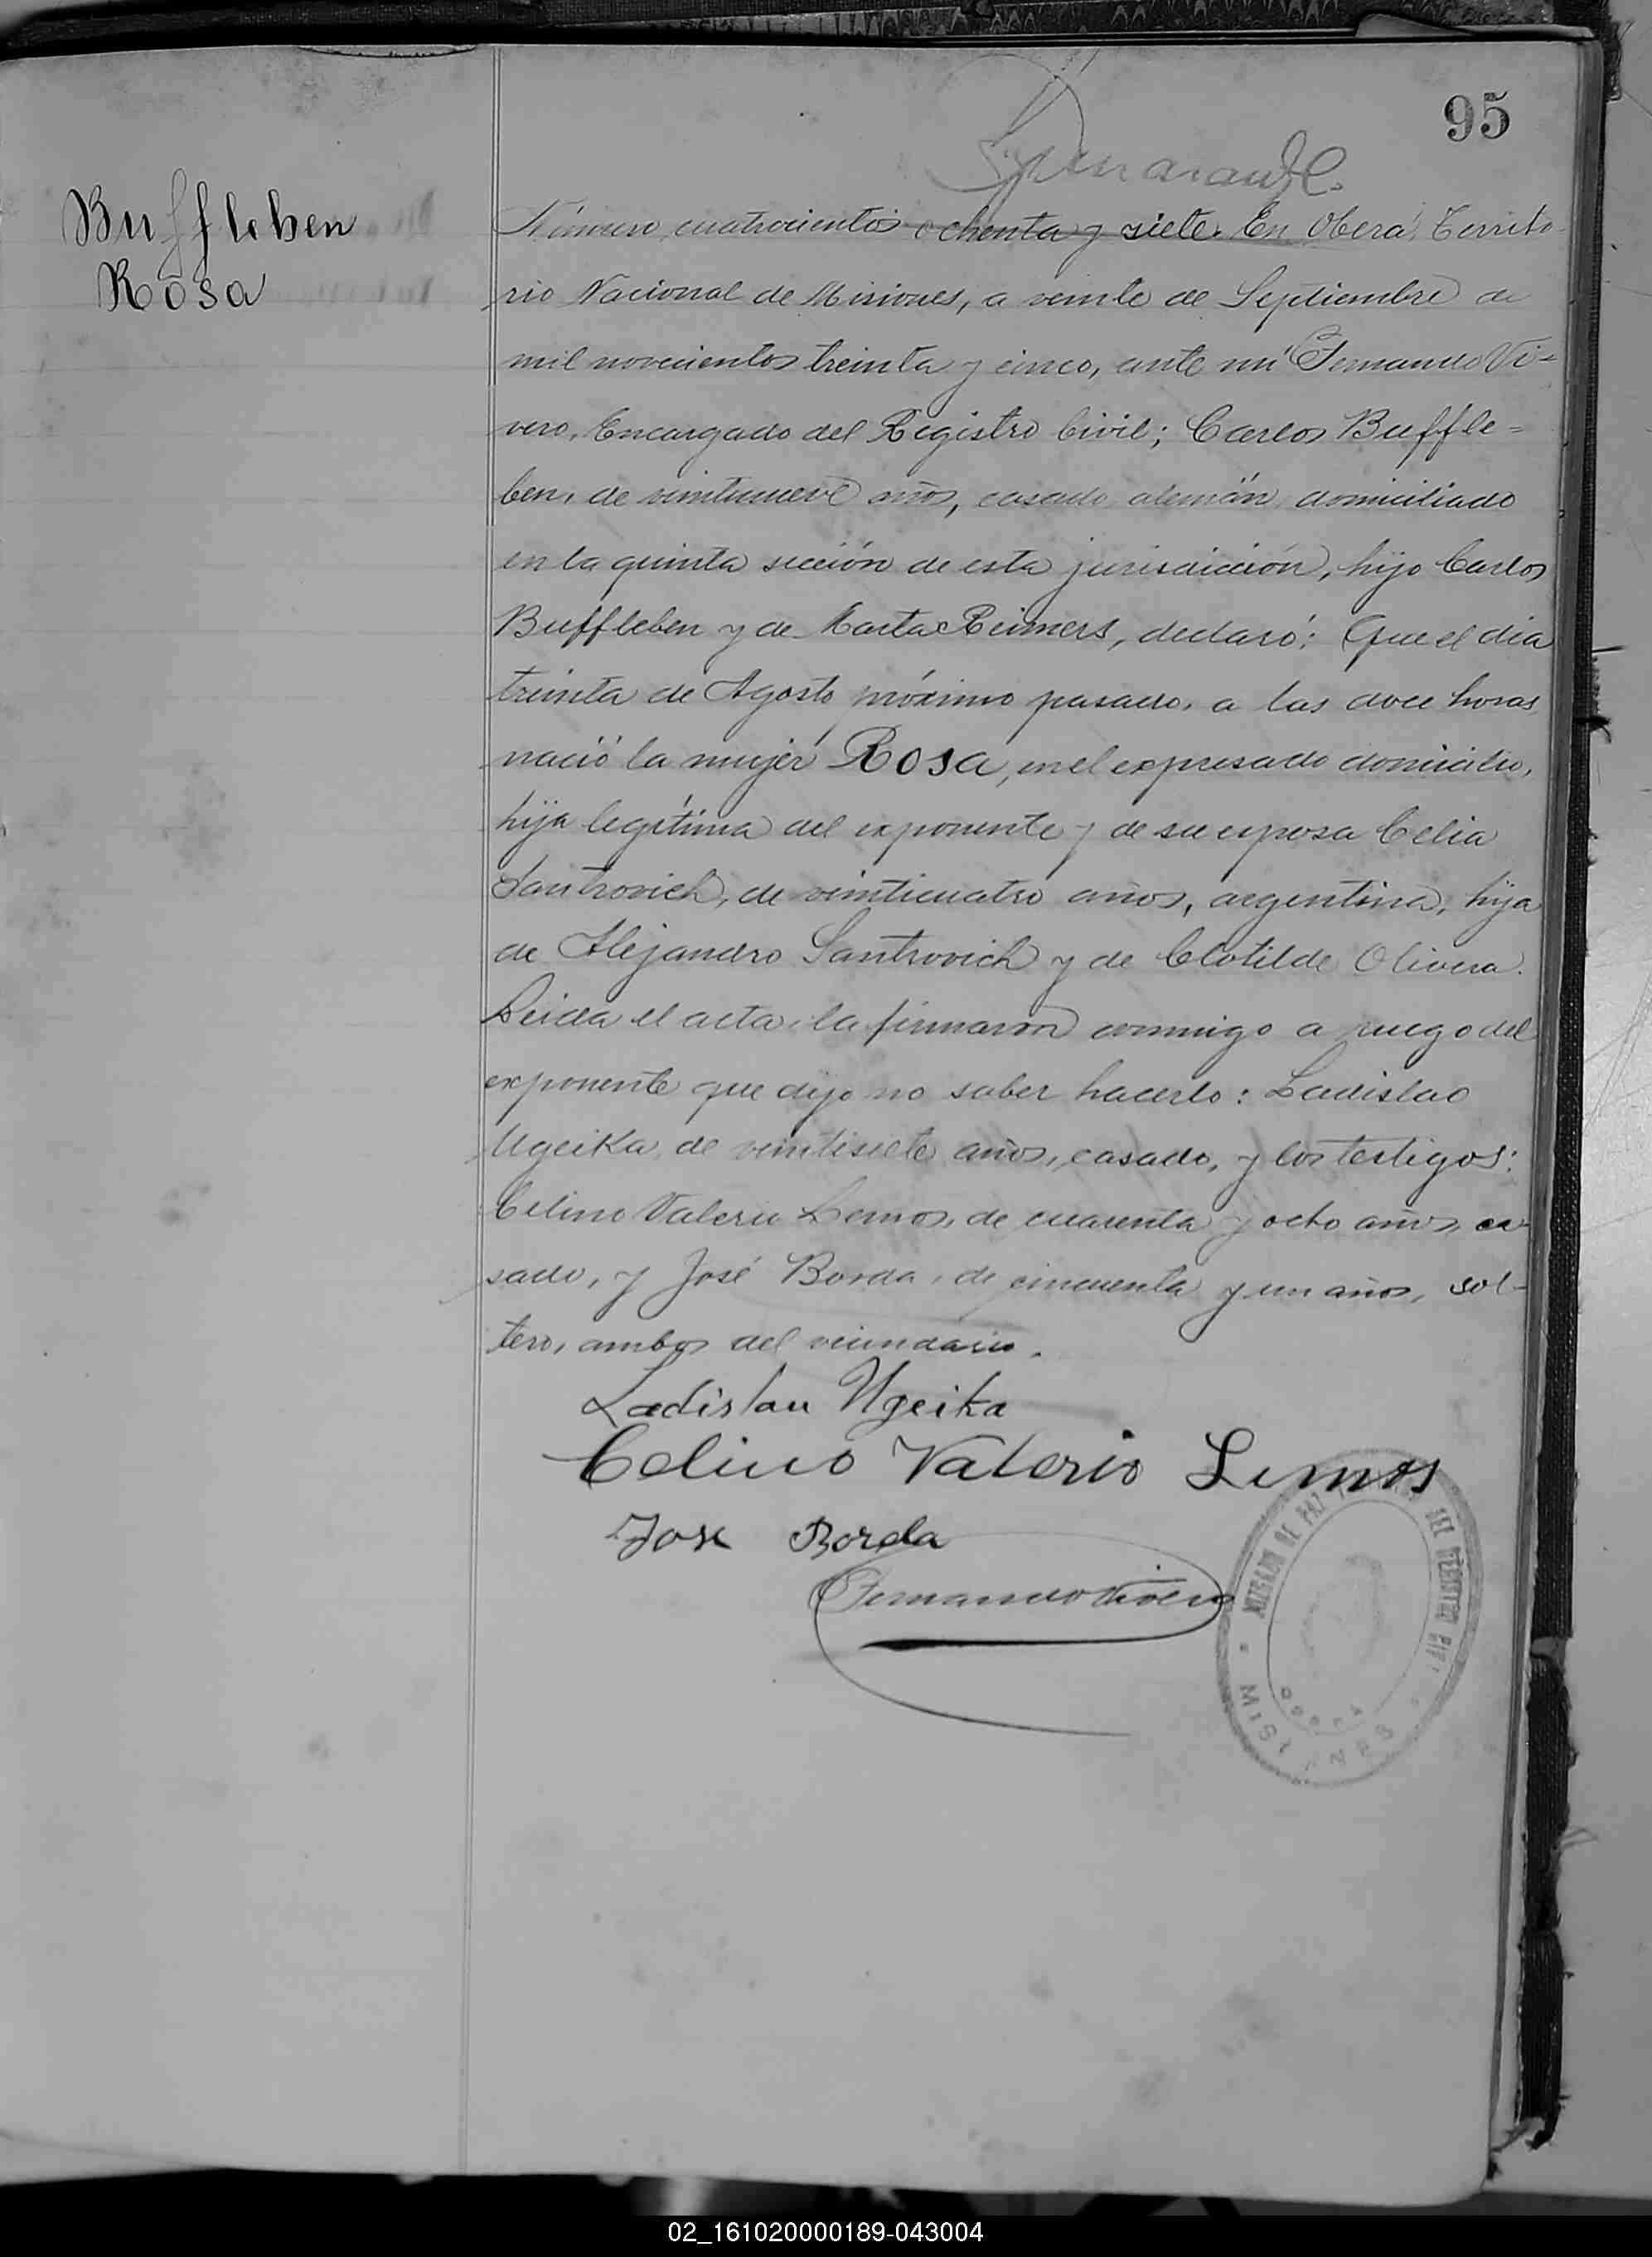 95
Buffleben
Rosa
Número cuatrocientos ochenta y siete. En Oberá, Territo-
rio Nacional de Misiones, a veinte de Septiembre de
mil novecientos treinta y cinco, ante mí Fernando Vi-
vero, Encargado del Registro Civil; Carlos Buffle-
ben, de veintinueve años, casado, alemán, domiciliado
en la quinta sección de esta jurisdicción, hijo Carlos
Buffleben y de Marta Reimers, declaró: Que el día
treinta de Agosto próximo pasado, a las doce horas
nació la mujer Rosa, en el expresado domicilio,
hija legítima del exponente y de su esposa Celia
Santrovich, de veinticuatro años, argentina, hija
de Alejandro Santrovich y de Clotilde Olivera.
Leida el acta, la firmaron conmigo a ruego del
exponente que dijo no saber hacerlo: Ladislao
Ugeika, de veintisiete años, casado, y los testigos:
Celino Valerio Lemos, de cuarenta y ocho años, ca-
sado, y José Borda, de cincuenta y un años, sol-
tero, ambos del vecindario.
Ladislau Ugeika
Celino Valerio Lemos
Jose Borda
Fernando Vivero
JUZGADO DE PAZ
DEL REGISTRO CIVIL
MISIONES
02_161020000189-043004